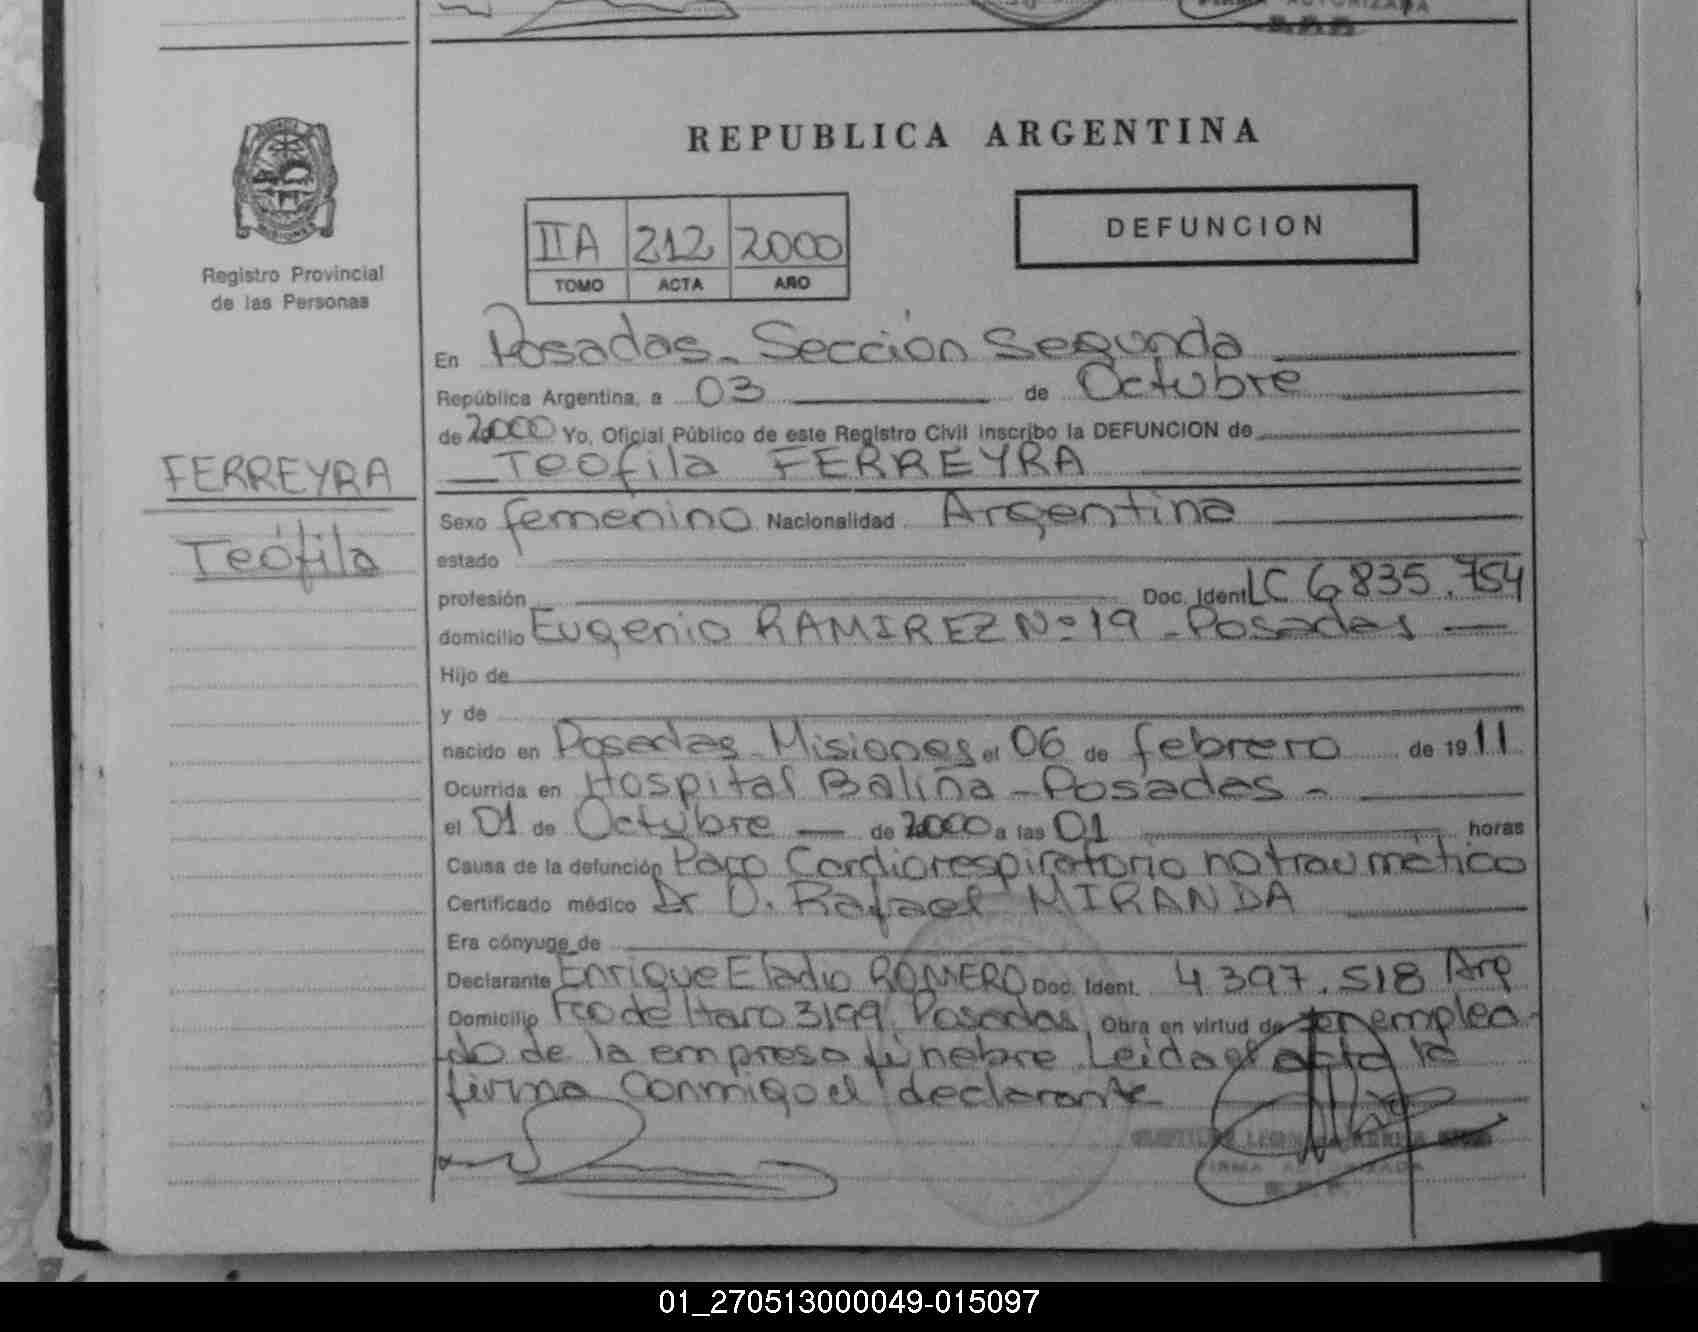 REPUBLICA ARGENTINA
Registro Provincial
de las Personas
IIA 212 2000
TOMO ACTA AÑO
DEFUNCION
FERREYRA
Teófila
En Posadas - Sección Segunda
República Argentina, a 03 de Octubre
de 2000 Yo, Oficial Público de este Registro Civil inscribo la DEFUNCION de
Teofila FERREYRA
Sexo femenino Nacionalidad Argentina
estado
profesión Doc. Ident LC 6835.754
domicilio Eugenio RAMIREZ Nº 19 - Posadas
Hijo de
y de
nacido en Posadas - Misiones el 06 de febrero de 1911
Ocurrida en Hospital Baliña - Posadas -
el 01 de Octubre de 2000 a las 01 horas
Causa de la defunción Paro Cardiorespiratorio no traumático
Certificado médico Dr O. Rafael MIRANDA
Era cónyuge de
Declarante Enrique Eladio ROMERO Doc. Ident. 4397.518 Arg
Domicilio Fco de Haro 3199 Posadas Obra en virtud de ser emplea-
do de la empresa fúnebre Leida el acta la
firma conmigo el declarante
FIRMA AUTORIZADA
01_270513000049-015097